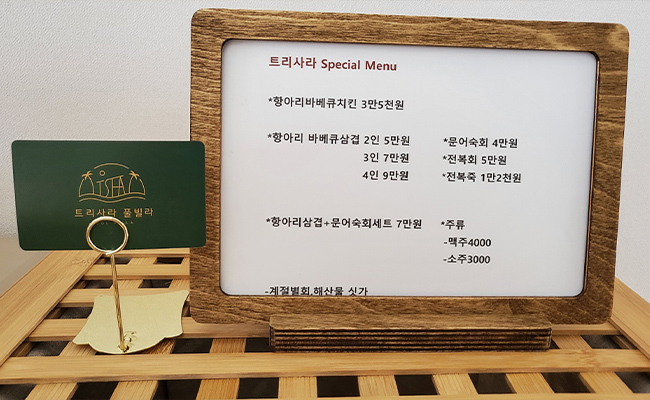 트리사라 Special Menu
*항아리바베큐치킨 3만5천원
*항아리 바베큐삼겹 2인 5만원
3인 7만원
4인 9만원
*문어숙회 4만원
*전복회 5만원
*전복죽 1만2천원
*항아리삼겹+문어숙회세트 7만원
*주류
-맥주4000
-소주3000
-계절별회,해산물 싯가
트리사라 풀빌라